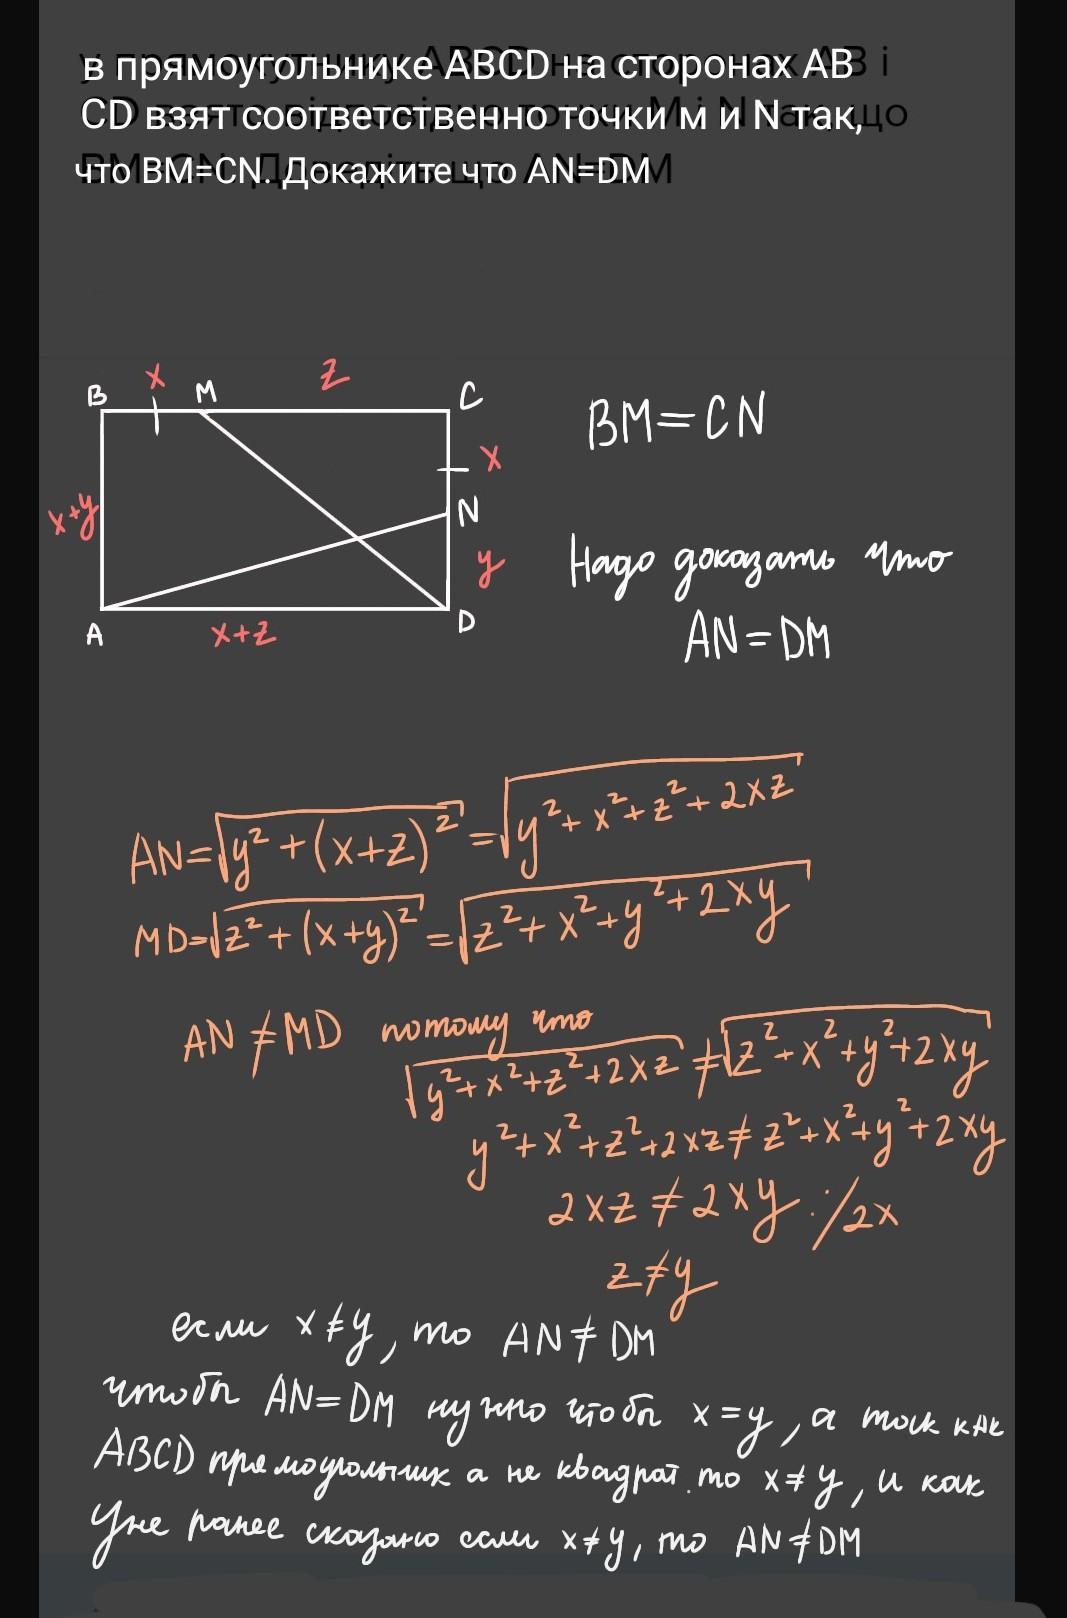 в прямоугольнике ABCD на сторонах AB
CD взят соответственно точки м и N так,
что BM=CN. Докажите что AN=DM
B x M z C
x
N
x+y
y
A x+z D
BM=CN
Надо доказать что
AN=DM
AN=√(y²+(x+z)²)=√(y²+x²+z²+2xz)
MD=√(z²+(x+y)²)=√(z²+x²+y²+2xy)
AN≠MD потому что
√(y²+x²+z²+2xz)≠√(z²+x²+y²+2xy)
y²+x²+z²+2xz≠z²+x²+y²+2xy
2xz≠2xy :/2x
z≠y
если x≠y, то AN≠DM
чтобы AN=DM нужно чтобы x=y, а так как
ABCD прямоугольник а не квадрат то x≠y, и как
уже ранее сказано если x≠y, то AN≠DM